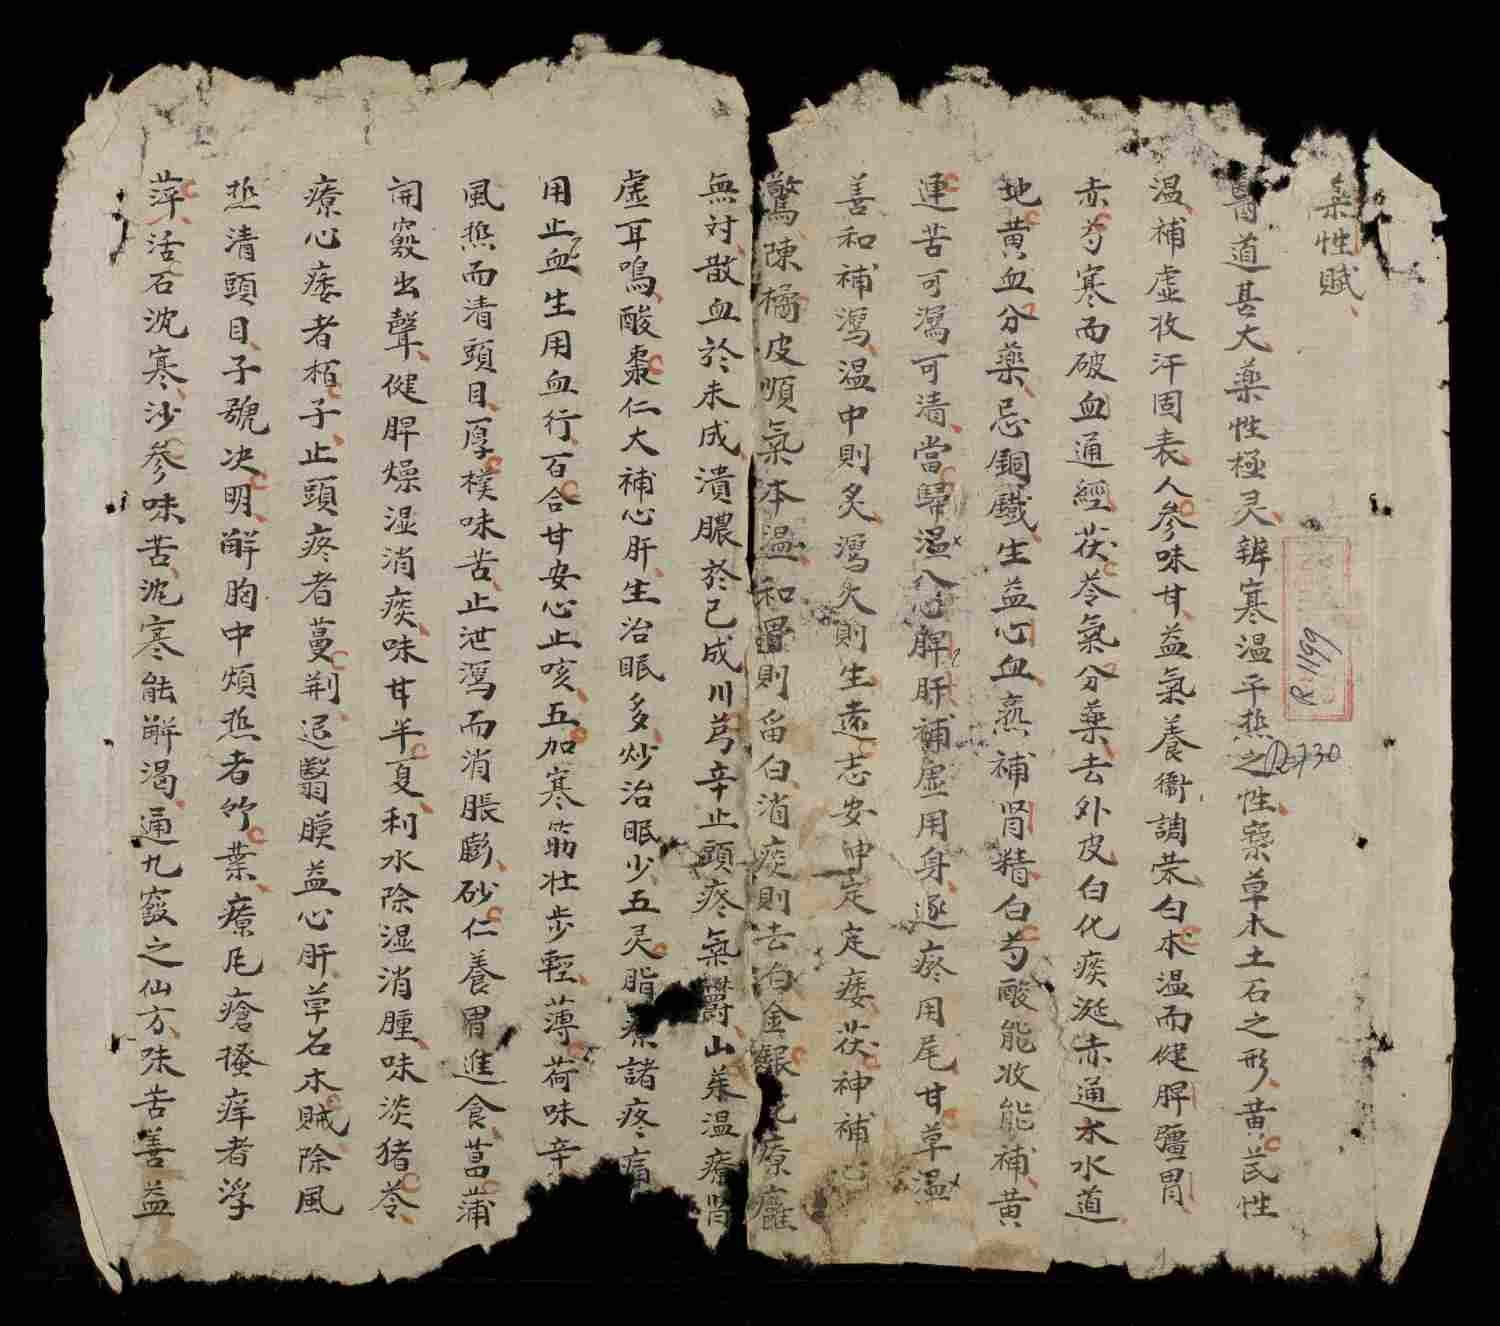 薬性賦
醫道甚大藥性極灵辨寒温平热之性察草木土石之形黄茋性
温補虚收汗固表人參味甘益氣養衞調荣白术温而健脾彊胃
赤芍寒而破血通經茯苓氣分藥去外皮白化痰涎赤通木水道
地黄血分藥忌銅鐡生益心血熟補肾精白芍酸能收能補黄
連苦可瀉可清當歸温入心脾肝補虚用身逐瘀用尾甘草温
善和補瀉温中則炙瀉火則生遠志安神定定痿茯神補心
驚陳橘皮順氣本温和胃則畄白消痰則去白金銀花療癰
無対散血於未成潰膿於已成川芎辛止頭疼氣欝山茱温療肾
虚耳鳴酸棗仁大補心肝生治眠多炒治眠少五灵脂療諸疼盲
用止血生用血行百合甘安心止咳五加寒筋壮步輕薄荷味辛
風热而清頭目厚樸味苦止泄瀉而消脹膨砂仁養胃進食菖蒲
開竅出聲健脾燥湿消痰味甘半夏利水除湿消腫味淡猪苓
療心痿者栢子止頭疼者蔓荆退翳膜益心肝草名木賊除風
热清頭目子號决明解胸中煩热者竹葉療疕瘡搔痒者浮
萍活石沈寒沙參味苦沈寒能解渴通九竅之仙方味苦善益
R.1199
R.730